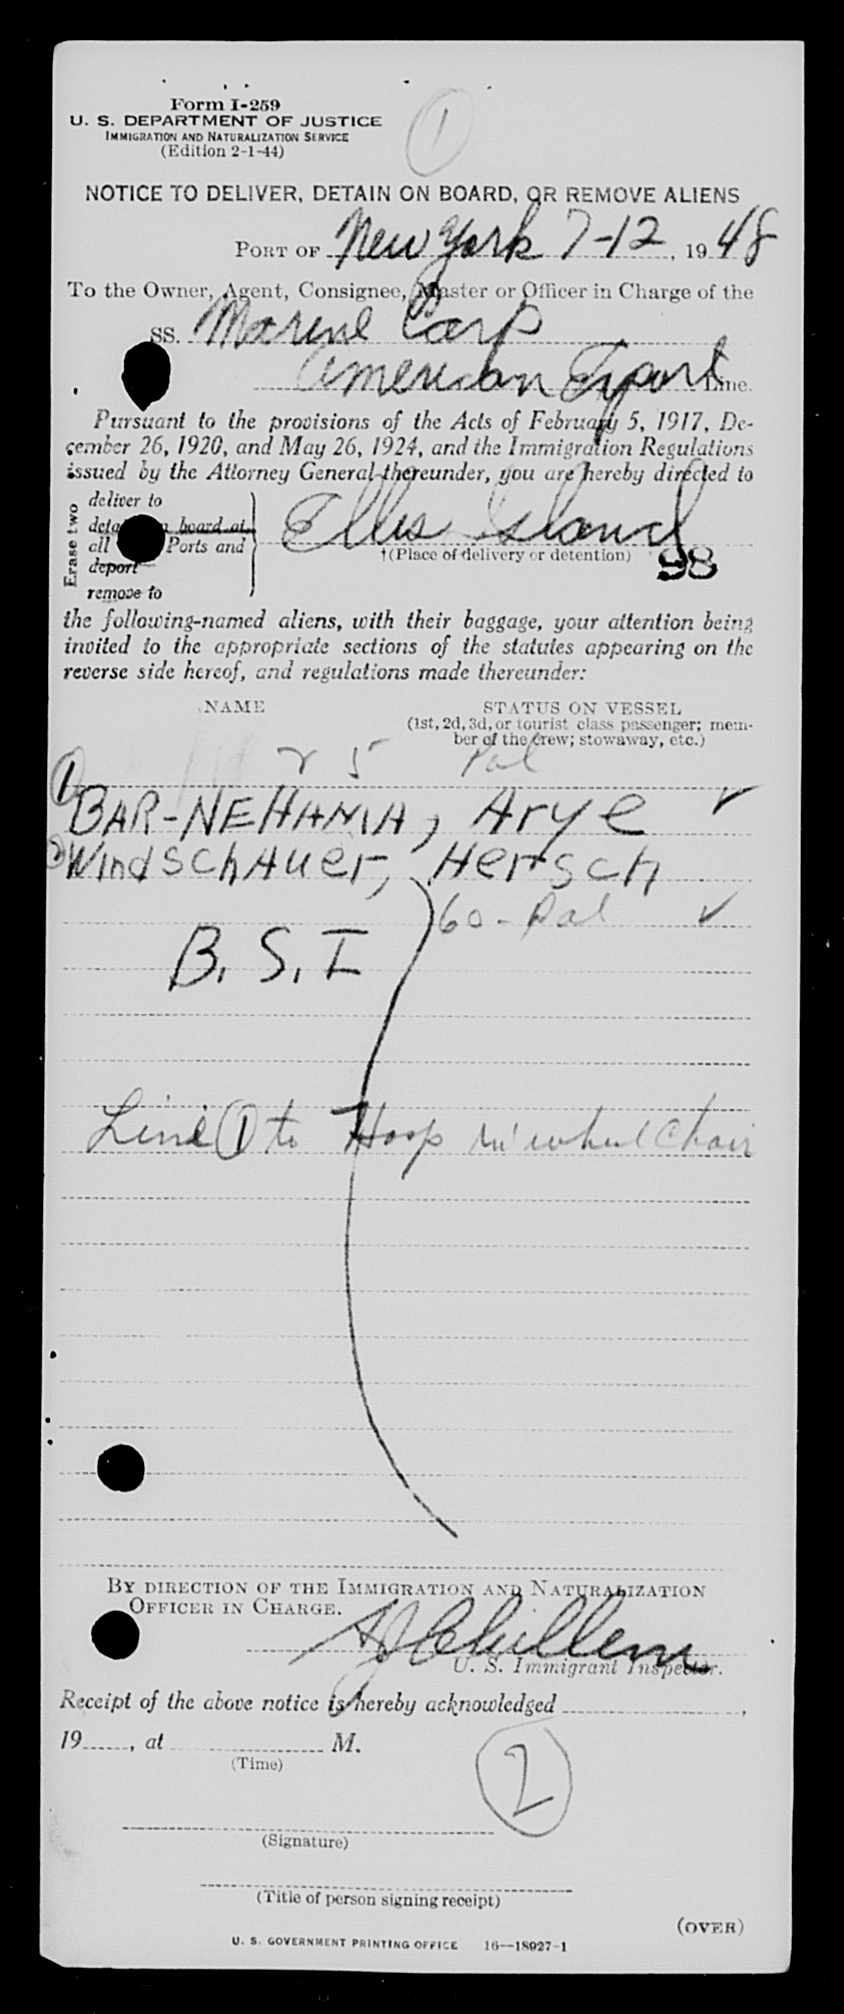 1
Form I-259
U. S. DEPARTMENT OF JUSTICE
IMMIGRATION AND NATURALIZATION SERVICE
(Edition 2-1-44)
NOTICE TO DELIVER, DETAIN ON BOARD, OR REMOVE ALIENS
PORT OF New York 7-12, 1948
To the Owner, Agent, Consignee, Master or Officer in Charge of the
SS. Marine Carp
American Export Line.
Pursuant to the provisions of the Acts of February 5, 1917, De-
cember 26, 1920, and May 26, 1924, and the Immigration Regulations
issued by the Attorney General thereunder, you are hereby directed to
Erase two
deliver to
on board at
all Ports and
deport
remove to
Ellis Island
†(Place of delivery or detention)
98
the following-named aliens, with their baggage, your attention being
invited to the appropriate sections of the statutes appearing on the
reverse side hereof, and regulations made thereunder:
NAME STATUS ON VESSEL
(1st, 2d, 3d, or tourist class passenger; mem-
ber of the crew; stowaway, etc.)
25 Pal
1 BAR-NEHAMIA, Arye ✓
2 WindSchAuer, Hersch
60 - Pal ✓
B. S. I
Line 1 to Hosp in wheel Chair
BY DIRECTION OF THE IMMIGRATION AND NATURALIZATION
OFFICER IN CHARGE.
U. S. Immigrant Inspector.
Receipt of the above notice is hereby acknowledged ,
19 , at M.
(Time)
2
(Signature)
(Title of person signing receipt)
(OVER)
U. S. GOVERNMENT PRINTING OFFICE 16—18927-1